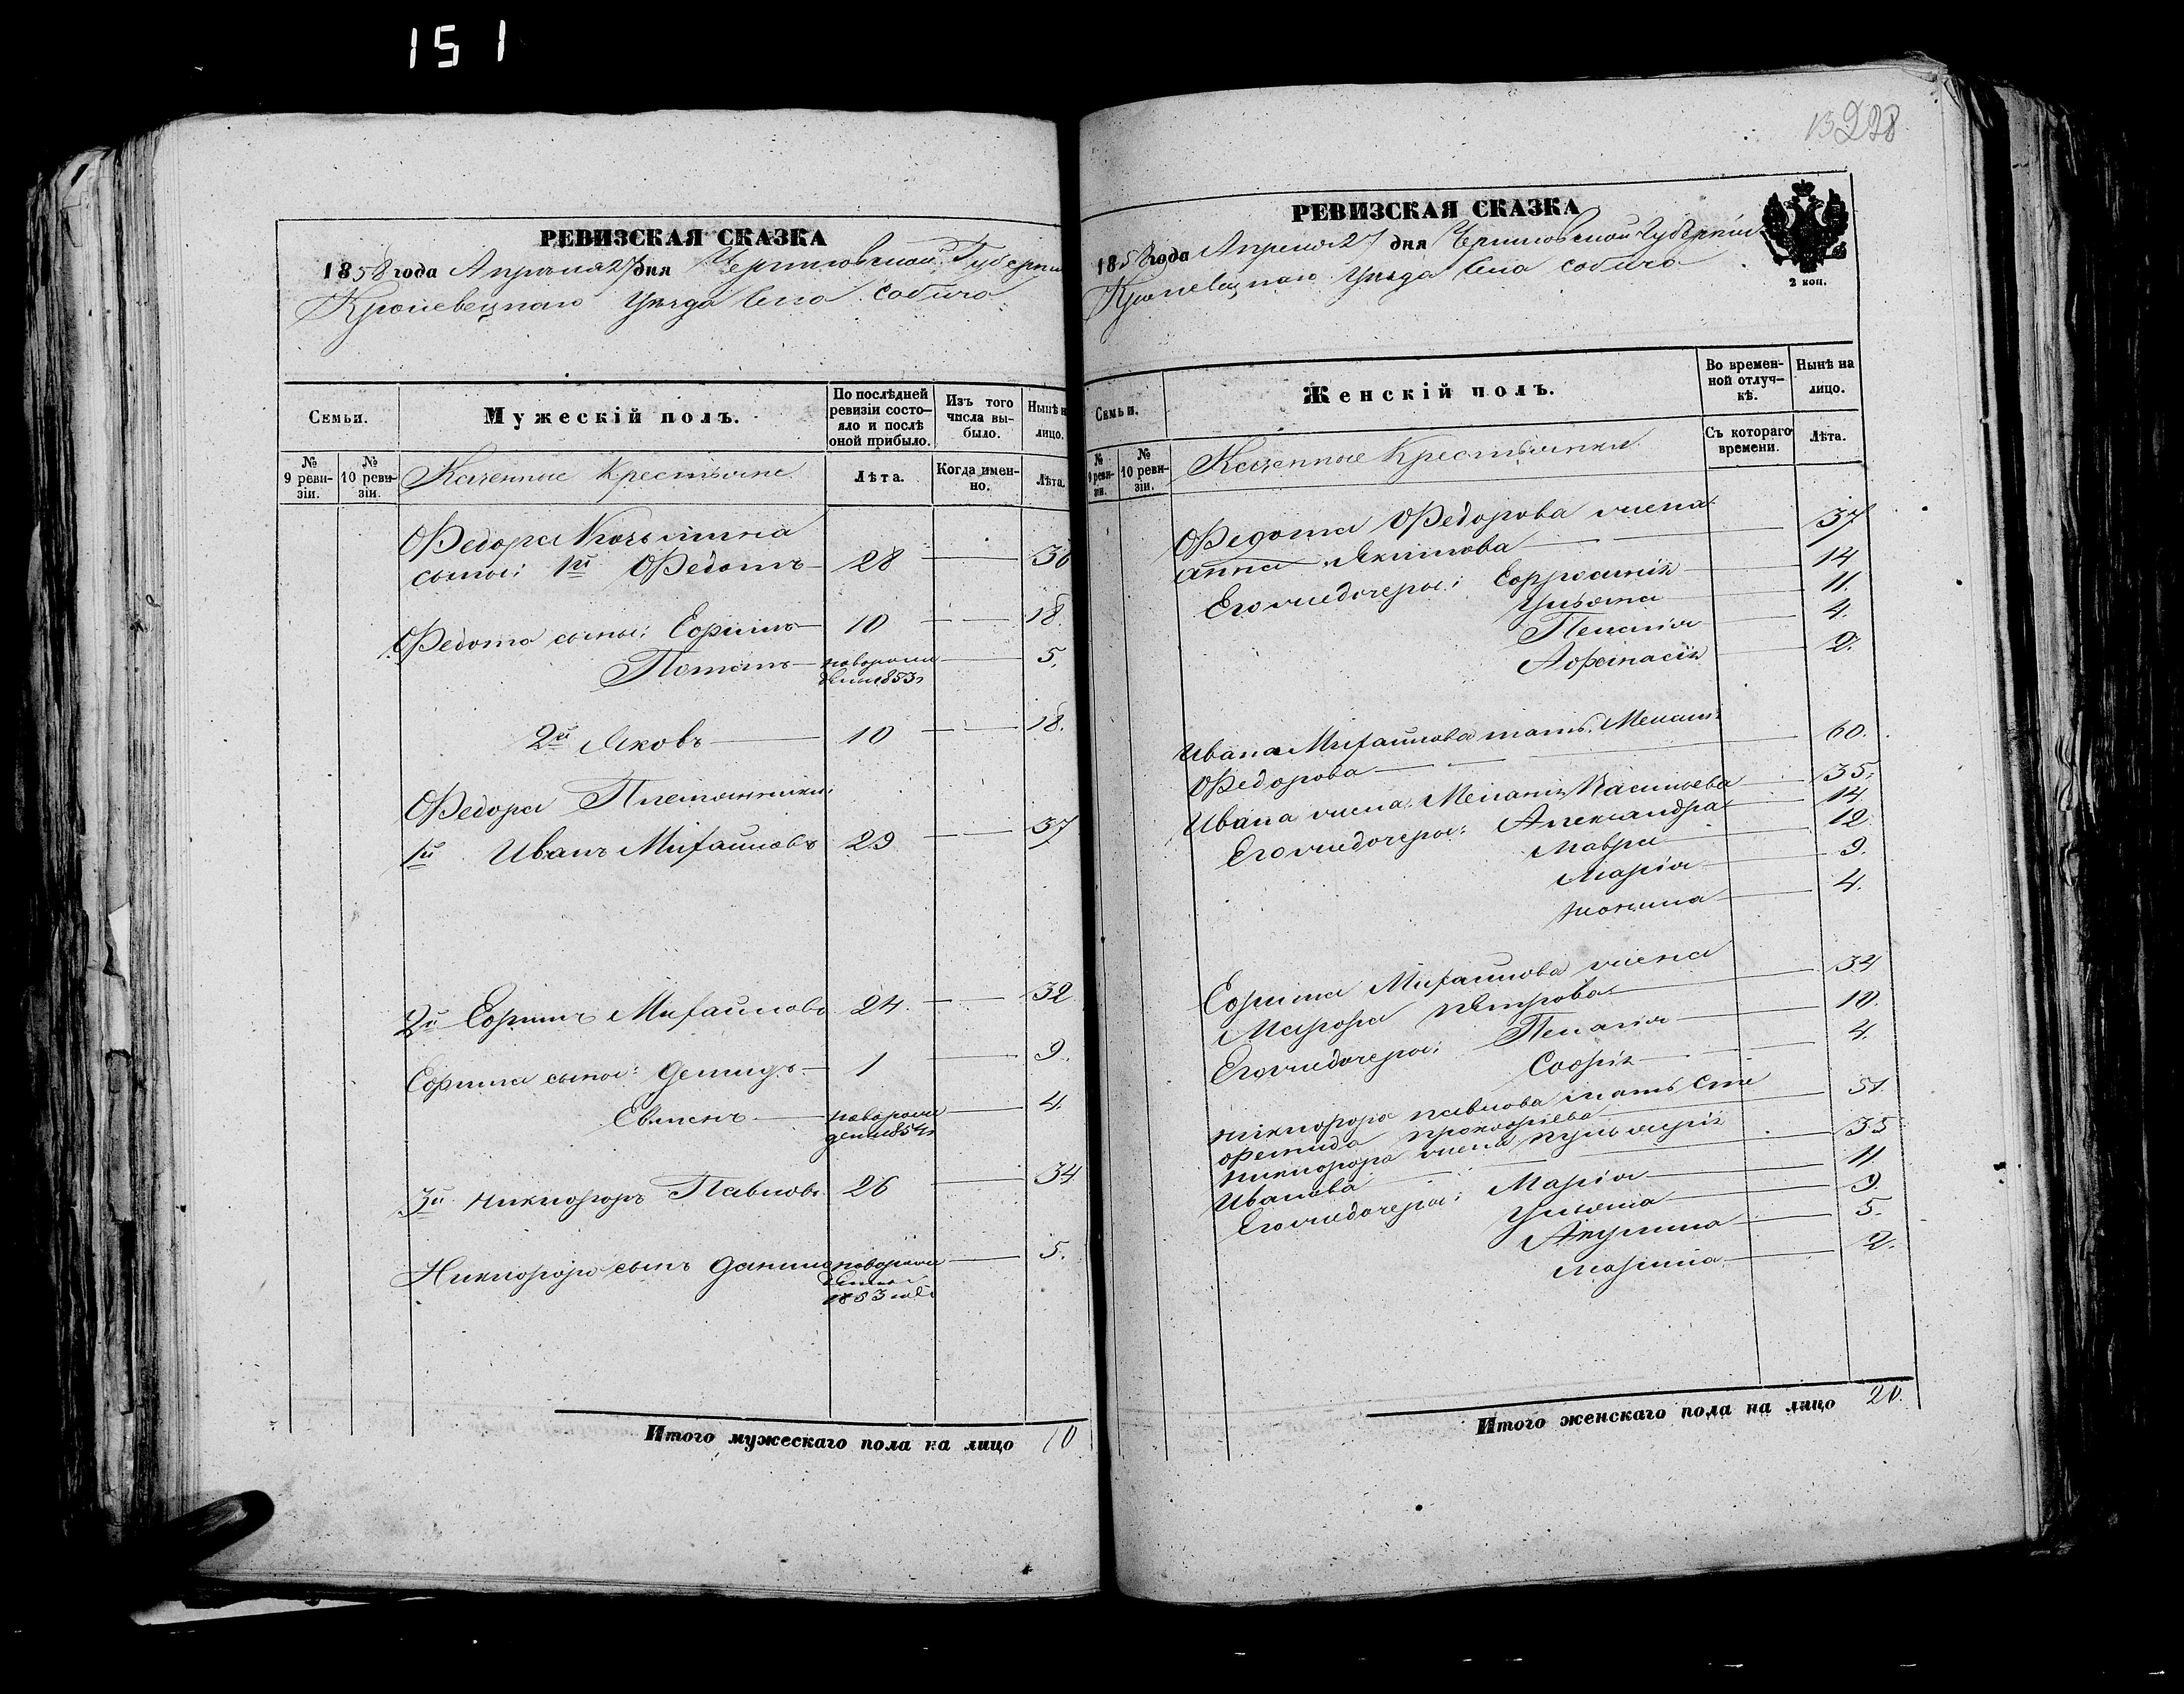 151
РЕВИЗСКАЯ СКАЗКА
1858 года Апреля 27 дня Черниговской Губерніи
Кролевецкаго Уезда Села Собича
Семьи.
Мужескій полъ.
По послѣдней ревизіи состояло и послѣ оной прибыло.
Изъ того числа выбыло.
Нынѣ на лицо.
№ 9 ревизіи.
№ 10 ревизіи.
Казенные Крестьяне
Лѣта.
Когда именно.
Лѣта.
Федора Козьмина
сыны: 1й Федотъ 28 36
Федота сыны: Ефимъ 10 18.
Потапъ новорожденъ 1853г 5.
2й Яковъ 10 18.
Федора Племянники:
1й Иванъ Михайловъ 29 37
2й Ефимъ Михайловъ 24. 32
Ефима сыны: Демидъ 1 9.
Евменъ новорожденъ 1854г 4.
3й Никифоръ Павловъ 26 34
Никифора сынъ Данило новорожденъ 1853 года 5.
Итого мужескаго пола на лицо 10
13 228
РЕВИЗСКАЯ СКАЗКА
1858 года Апреля 27 дня Черниговской Губерніи
Кролевецкаго Уезда Села Собича
2 коп.
Семьи.
Женскій полъ.
Во временной отлучкѣ.
Нынѣ на лицо.
№ 9 ревизіи.
№ 10 ревизіи.
Казенные Крестьянки
Съ котораго времени.
Лѣта.
Федота Федорова жена
Анна Якимова 37
Его же дочеры: Ефросинія 14
Ульяна 11.
Пелагія 4.
Афанасія 2.
Ивана Михайлова мать Меланія
Федорова 60.
Ивана жена Меланія Васильева 35.
Его же дочеры: Александра 14
Мавра 12
Марія 9.
4.
Ефима Михайлова жена
Марфа Петрова 34
Его же дочеры: Пелагія 10.
Софія 4.
Никифора Павлова мать Сте
фанида Прокофіева 51.
Никифора жена Пульхерія
Иванова 35
Его же дочеры: Марія 11
Ульяна 9.
Акулина 5.
Марина 2.
Итого женскаго пола на лицо 20.